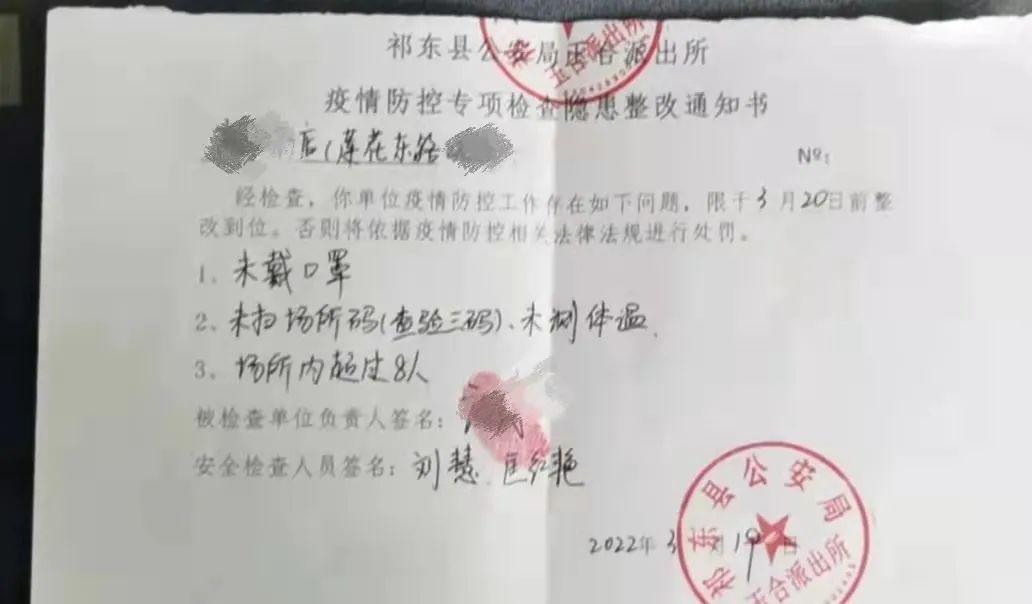 祁东县公安局玉合派出所
疫情防控专项检查隐患整改通知书
店(莲花东路
№:
经检查，你单位疫情防控工作存在如下问题，限于3月20日前整
改到位。否则将依据疫情防控相关法律法规进行处罚。
1、未戴口罩
2、未扫场所码(查验三码)、未测体温.
3、场所内超过8人
被检查单位负责人签名:
安全检查人员签名: 刘慧、匡红艳
2022年3月19日
祁东县公安局
玉合派出所